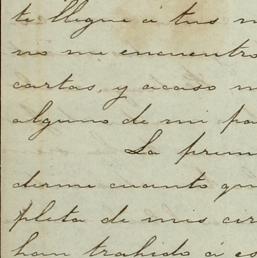 te llegue á tus m
no me encuentro
cartas, y acaso m
alguno de mi pa
La prim
derme cuanto qu
pleta de mis cir
han trahido á es